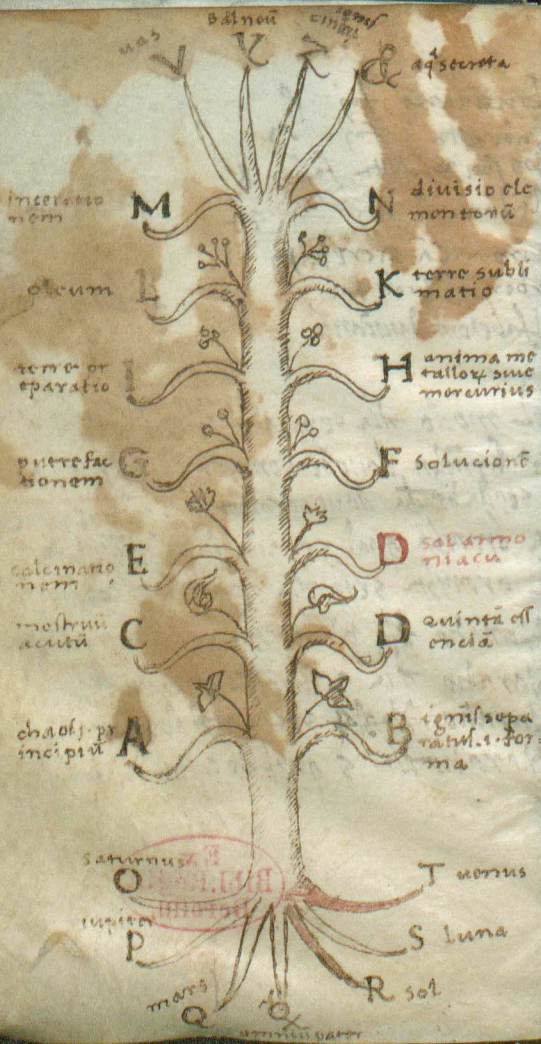 uas
Balneū
cinis
V
X
Z
&
aq̄ secreta
inceratio
nem
M
N
diuisio ele
mentorū
oleum
L
K
terre subli
matio
terre pr
eparatio
I
H
anima me
tallorꝝ siue
mercurius
putrefac
tionem
G
F
solucionē
calcinatio
nem
E
D
sal armo
niacū
mestruū
acutū
C
D
quintā ess
enciā
chaos .i. pr
incipiū
A
B
ignis sepa
ratus .i. for
ma
saturnus
O
T uenus
iupiter
P
S luna
mars
Q
R sol
omniū pater